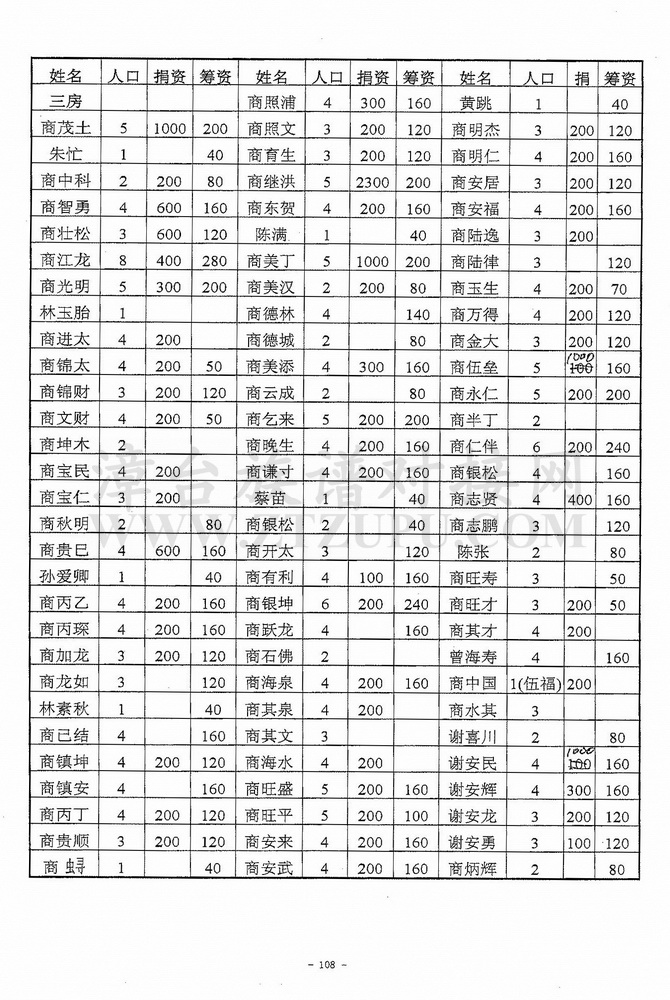 姓名 人口 捐资 筹资 姓名 人口 捐资 筹资 姓名 人口 捐 筹资
三房 商照浦 4 300 160 黄跳 1 40
商茂土 5 1000 200 商照文 3 200 120 商明杰 3 200 120
朱忙 1 40 商育生 3 200 120 商明仁 4 200 160
商中科 2 200 80 商继洪 5 2300 200 商安居 3 200 120
商智勇 4 600 160 商东贺 4 200 160 商安福 4 200 160
商壮松 3 600 120 陈满 1 40 商陆逸 3 200
商江龙 8 400 280 商美丁 5 1000 200 商陆律 3 120
商光明 5 300 200 商美汉 2 200 80 商玉生 4 200 70
林玉胎 1 商德林 4 140 商万得 4 200 120
商进太 4 200 商德城 2 80 商金大 3 200 120
商锦太 4 200 50 商美添 4 300 160 商伍垒 5 1000 100 160
商锦财 3 200 120 商云成 2 80 商永仁 5 200 200
商文财 4 200 50 商乞来 5 200 200 商半丁 2
商坤木 2 商晚生 4 200 160 商仁伴 6 200 240
商宝民 4 200 商谦寸 4 200 160 商银松 4 160
商宝仁 3 200 蔡苗 1 40 商志贤 4 400 160
商秋明 2 80 商银松 2 40 商志鹏 3 120
商贵巳 4 600 160 商开太 3 120 陈张 2 80
孙爱卿 1 40 商有利 4 100 160 商旺寿 3 50
商丙乙 4 200 160 商银坤 6 200 240 商旺才 3 200 50
商丙琛 4 200 160 商跃龙 4 160 商其才 4 200
商加龙 3 200 120 商石佛 2 曾海寿 4 160
商龙如 3 120 商海泉 4 200 160 商中国 1(伍福) 200
林素秋 1 40 商其泉 4 200 商水其 3
商已结 4 160 商其文 3 谢喜川 2 80
商镇坤 4 200 120 商海水 4 200 谢安民 4 1000 100 160
商镇安 4 160 商旺盛 5 200 160 谢安辉 4 300 160
商丙丁 4 200 120 商旺平 5 200 100 谢安龙 3 200 120
商贵顺 3 200 120 商安来 4 200 160 谢安勇 3 100 120
商 蟳 1 40 商安武 4 200 160 商炳辉 2 80
漳台族谱对接网
WWW.ZTZUPU.COM
- 108 -